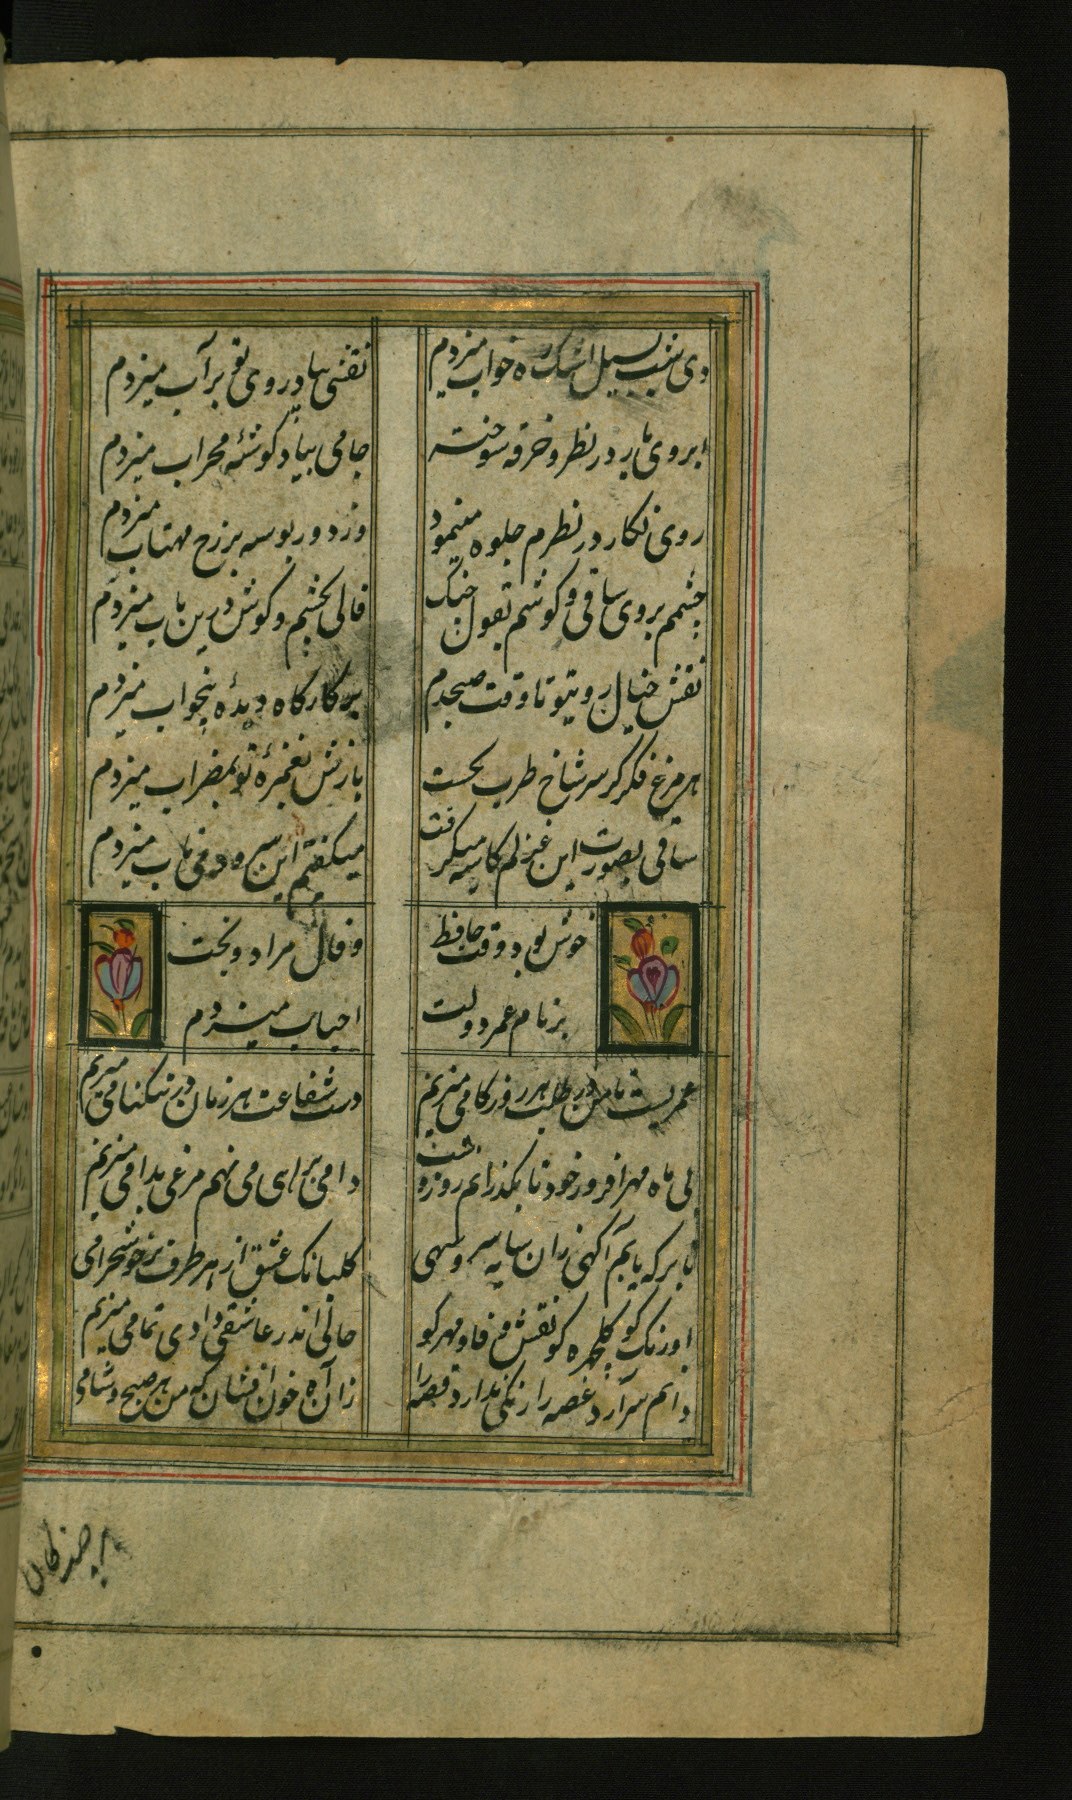 دی شب بسیل اشک ره خواب میزدم
نقشی بیاد روی تو بر آب میزدم
ابروی یار در نظر و خرقه سوخته
جامی بیاد گوشهٔ محراب میزدم
روی نگار در نظرم جلوه مینمود
وز دور بوسه بر رخ مهتاب میزدم
چشمم بروی ساقی و گوشم بقول چنگ
فالی بچشم و گوش درین باب میزدم
نقش خیال رویتو تا وقت صبحدم
بر کارگاه دیدهٔ بیخواب میزدم
هر مرغ فکر کز سر شاخ طرب بجست
بازش بغمزهٔ تو بمضراب میزدم
ساقی بصورت این غزلم کاسه میگرفت
میگفتم این سرود و می ناب میزدم
خوش بود وقت حافظ و فال مراد و بخت
بر نام عمر دولت احباب میزدم
عمریست تا من در طلب هر روز کامی میزنم
دست شفاعت هر زمان در نیکنامی میزنم
بی ماه مهر افروز خود تا بگذرانم روزه شب
دامی براهی می نهم مرغی بدامی میزنم
تا بر که یابم آگهی زان سایه سرو سهی
گلبانگ عشق از هر طرف بر خوشخرامی
اورنگ کو گلچهره کو نقش وفا و مهر کو
حالی اندر عاشقی داوی تمامی میزنم
دانم سر آرد غصه را رنگی ندارد قصه را
زان آه خون افشان که من هر صبح و شامی
هر چند کان